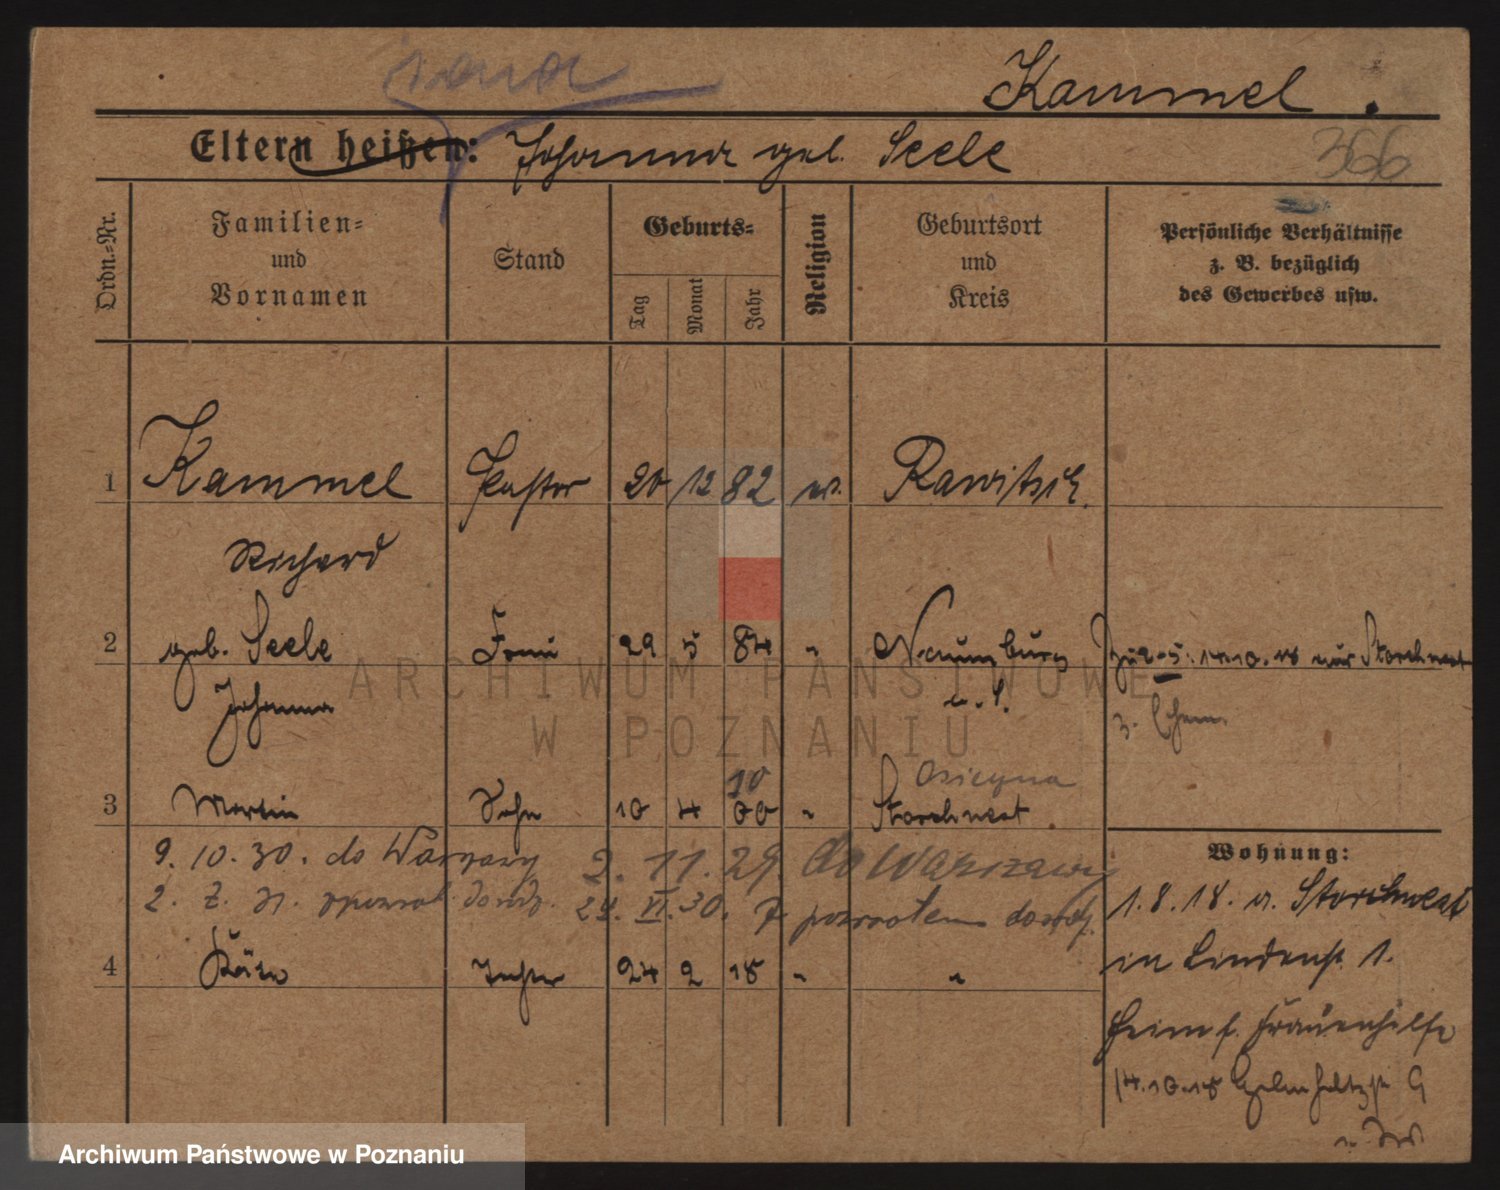 Kammel.
Eltern heißen: Johanna geb. Seele
366
Ordn.=Nr.
Familien=
und
Vornamen
Stand
Geburts=
Tag
Monat
Jahr
Religion
Geburtsort
und
Kreis
Persönliche Verhältnisse
z. B. bezüglich
des Gewerbes usw.
1 Kammel Pastor 20 12 82 ev. Rawitsch
Richard
2 geb. Seele Frau 29 5 84 " Naumburg
Johanna
2-5. 14.10.18 nur Storchnest
ARCHIWUM PAŃSTWOWE
W POZNANIU
10 Osieczna
3 Martin Sohn 10 4 00 " Storchnest
9. 10. 30. do Warszawy 2. 11. 29. do Warszawy
24. VI. 30. z powrotem
4 Tochter 24 2 18 " "
Wohnung:
1.8.18. v. Storchnest
in Lindenstr. 1.
Heim f. Frauenhilfe
14.10.18
Archiwum Państwowe w Poznaniu